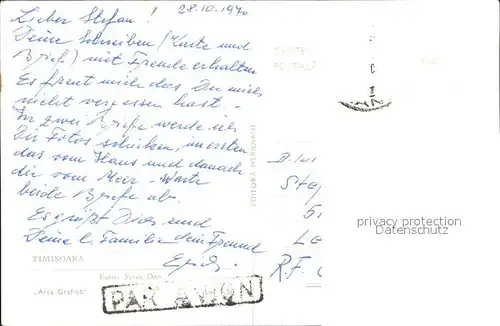 28.10.1970
Lieber Stefan !
Deine Schreiben (Karte und
Brief) mit Freude erhalten
Es freut mich das Du mich
nicht vergessen hast. -
In zwei Briefe werde ich
Dir Fotos schicken, im ersten
das vom Haus und danach
die vom Meer - Warte
beide Briefe ab.
Es grüßt Dich und
Deine l. Familie dein Freund
TIMIȘOARA
Foto: Sorin Dan
„Arta Grafică"
PAR AVION
EDITURA MERIDIANE
CARTE
POȘTALĂ
R.F.
privacy protection
watermark